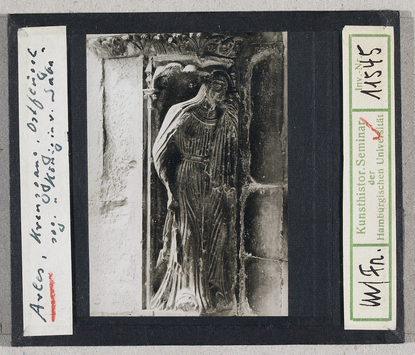 Arles, Kreuzgang, Ostflügel
sog. "Königin v. Saba"
Kunsthistor. Seminar
der
Hamburgischen Universität
Inv.-Nr.
11545